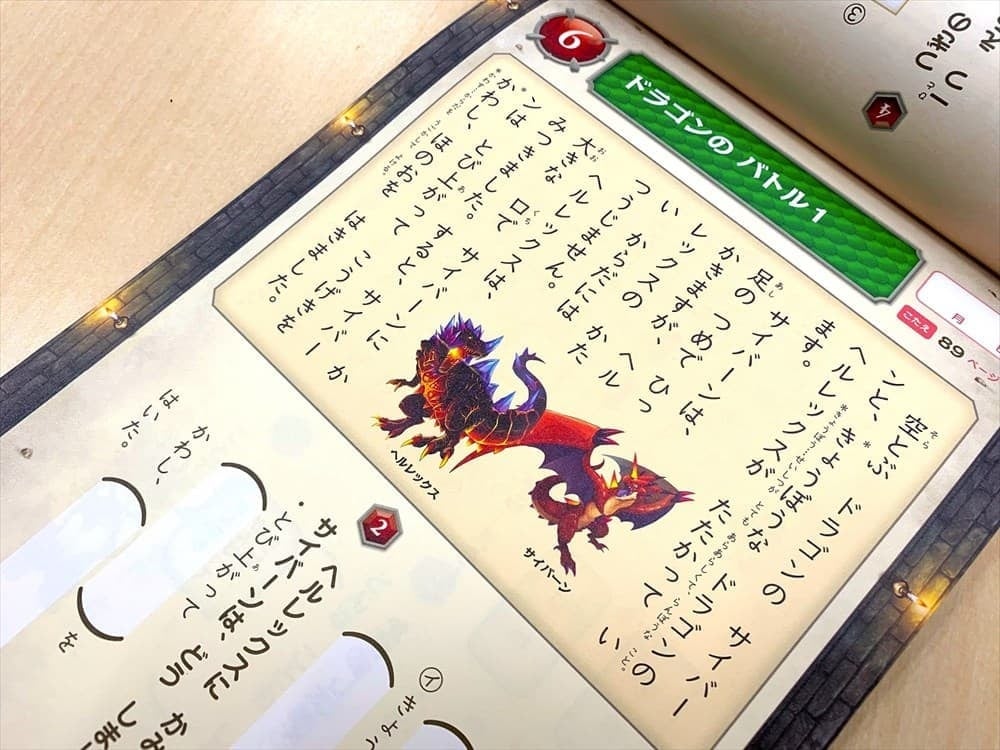 6
ドラゴンの バトル1
月
こたえ 89 ページ
空とぶ ドラゴンの サイバー
ンと、*きょうぼうな ドラゴンの
ヘルレックスが たたかって い
ます。
サイバーンは、
足の つめで ひっ
かきますが、 ヘル
レックスの かた
い からだには
つうじません。
ヘルレックスは、
大きな 口で サイバーンに か
みつきました。 すると、 サイバー
ンは とび上がって こうげきを
*かわし、 ほのおを はきました。
ヘルレックス
サイバーン
2
ヘルレックスに かみ
サイバーンは、どう しま
・とび上がって
を
かわし、
はいた。
イ
③